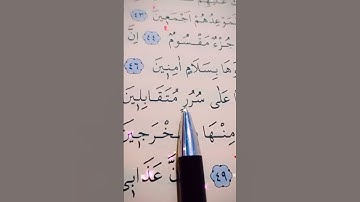 لَمَوْعِدُهُمْ أَجْمَعِينَ ﴿٤٣﴾
جُزْءٌ مَقْسُومٌ ﴿٤٤﴾ إِنَّ
بِسَلَامٍ اٰمِنِينَ ﴿٤٦﴾
عَلٰى سُرُرٍ مُتَقَابِلِينَ
مِنْهَا بِمُخْرَجِينَ
﴿٤٩﴾ عَذَابِي